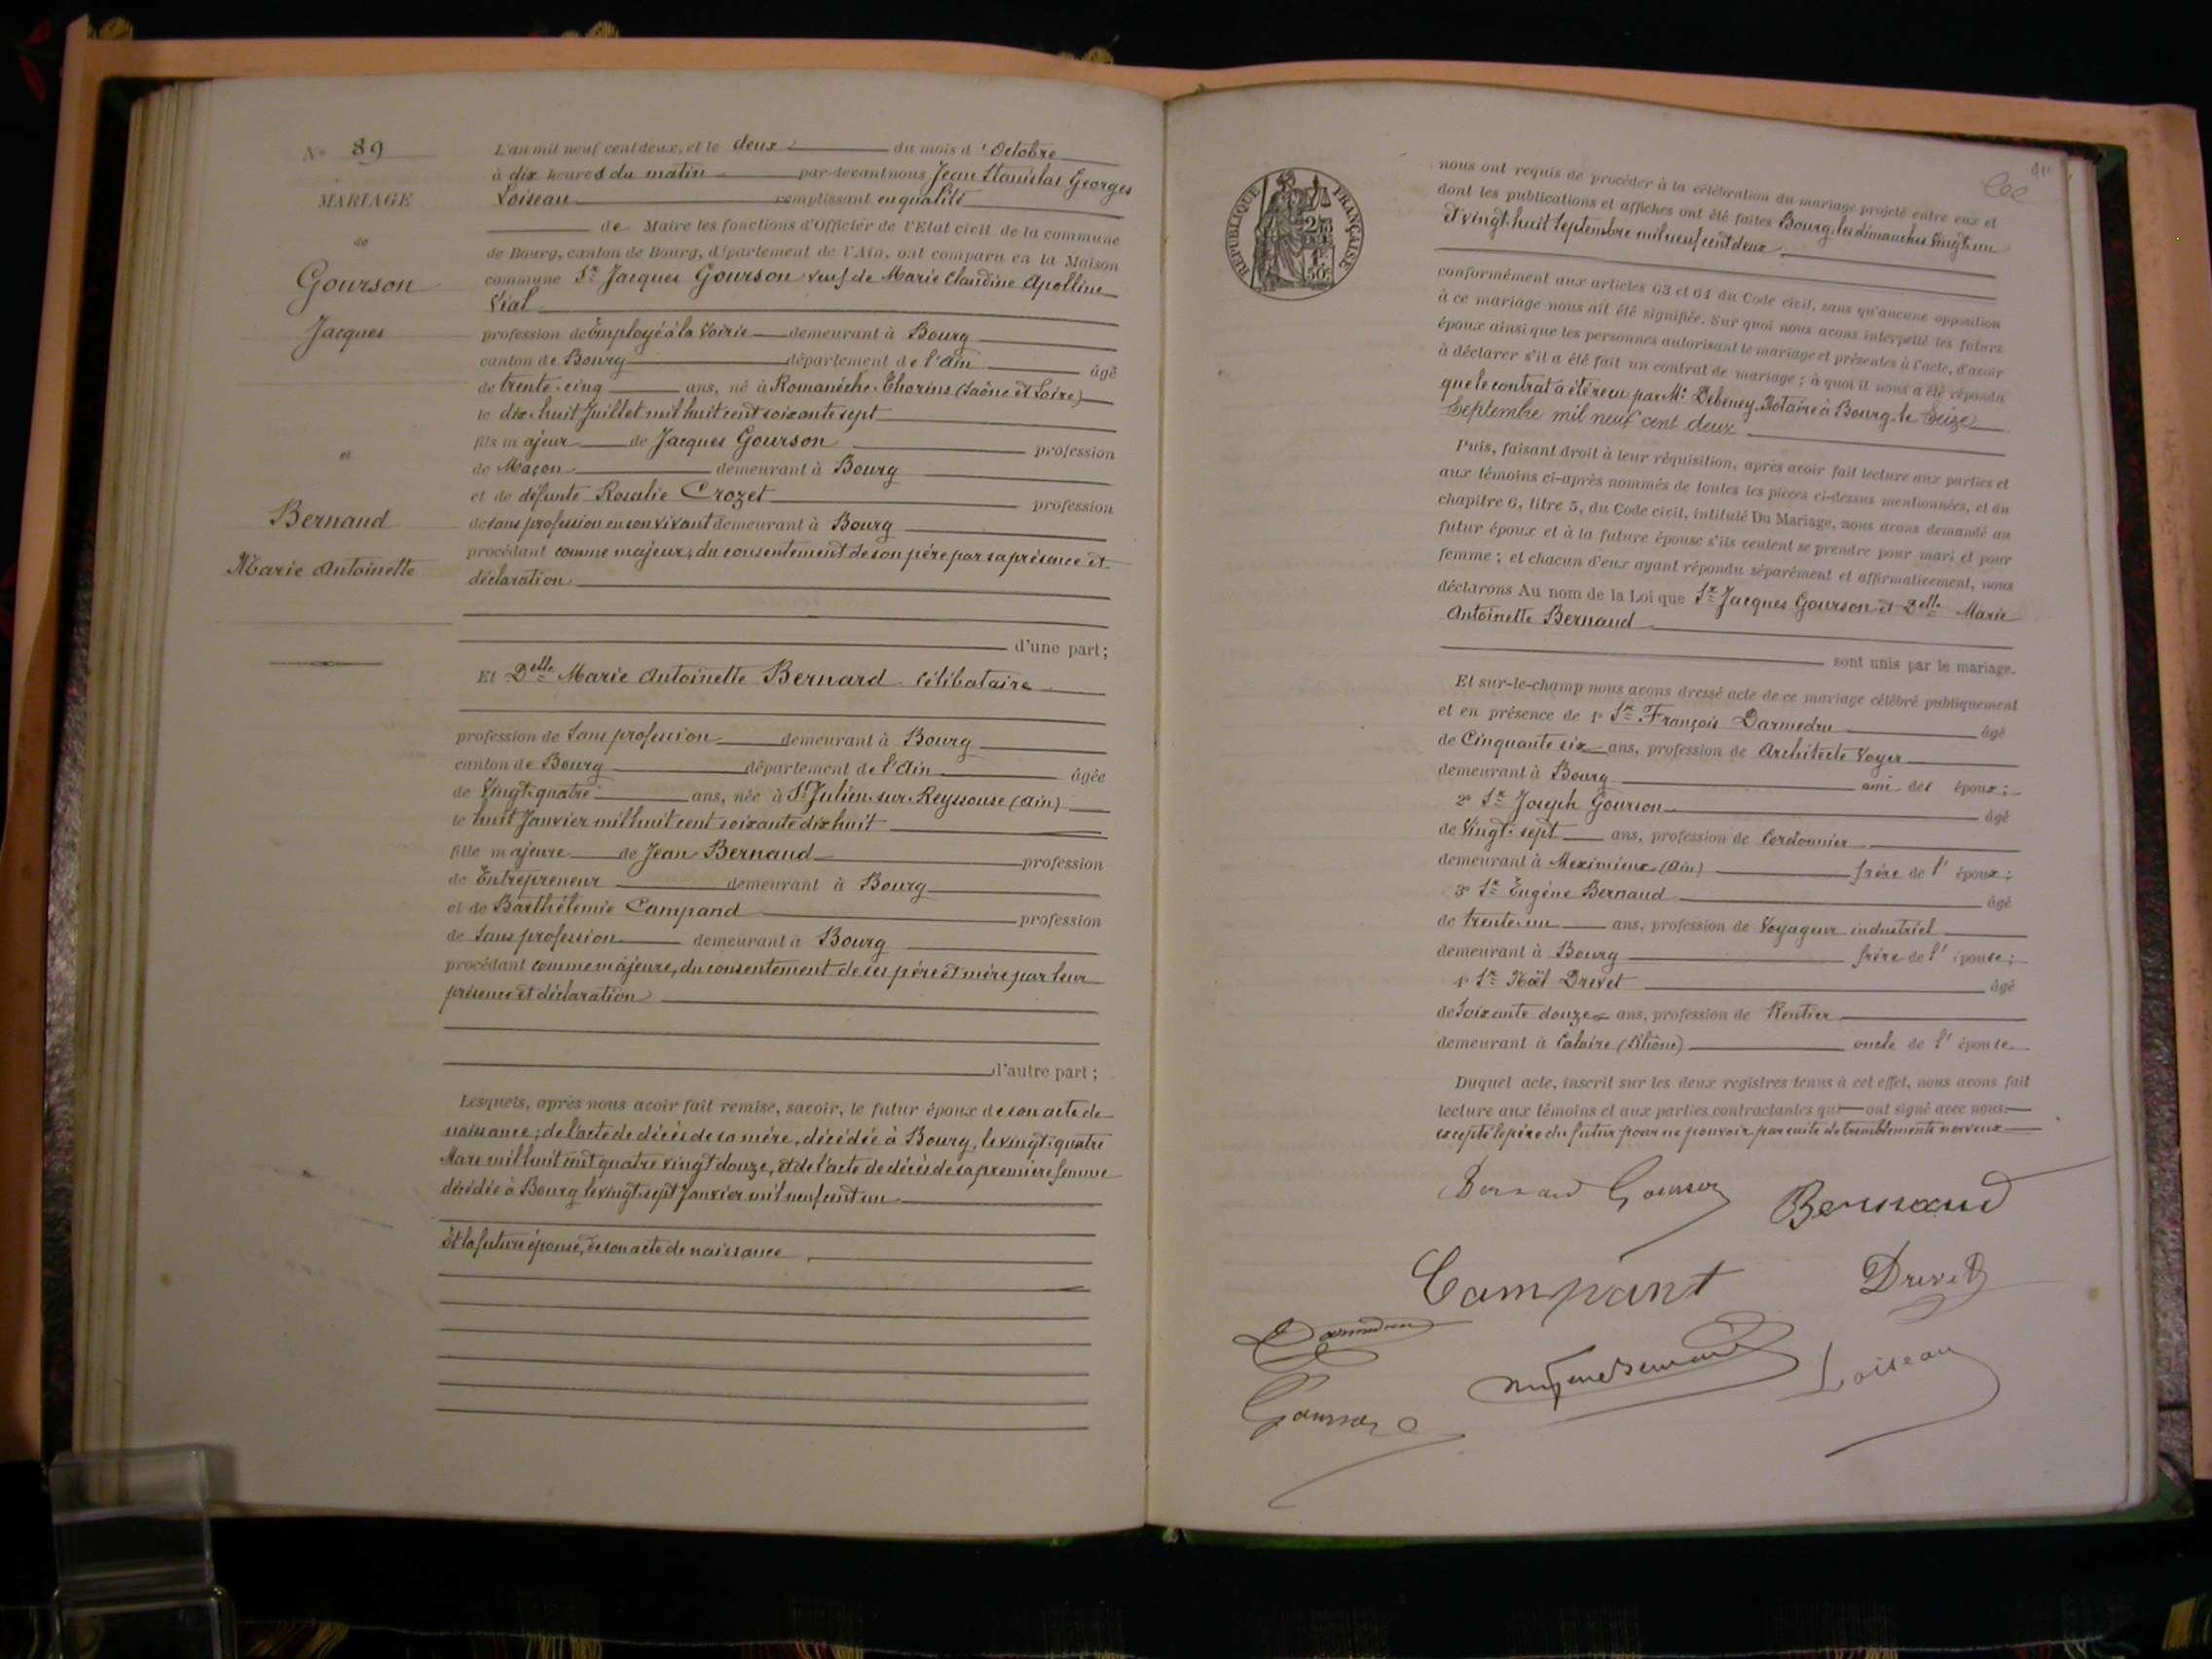 N° 89
MARIAGE
de
Gourson
Jacques
et
Bernaud
Marie Antoinette
L'an mil neuf cent deux, et le deux du mois d'Octobre
à dix heures du matin par-devant nous Jean Stanislas Georges
Loiseau remplissant en qualité
de Maire les fonctions d'Officier de l'Etat civil de la commune
de Bourg, canton de Bourg, département de l'Ain, ont comparu en la Maison
commune Sr Jacques Gourson veuf de Marie Claudine Apolline
Vial
profession de Employé à la Voirie demeurant à Bourg
canton de Bourg département de l'Ain âgé
de trente-cinq ans, né à Romanèche-Thorins (Saône et Loire)
le dix-huit Juillet mil huit cent soixante sept
fils majeur de Jacques Gourson profession
de Maçon demeurant à Bourg
et de défunte Rosalie Crozet profession
de sans profession en son vivant demeurant à Bourg
procédant comme majeur, du consentement de son père par sa présence et
déclaration
d'une part;
Et Delle Marie Antoinette Bernard célibataire
profession de Sans profession demeurant à Bourg
canton de Bourg département de l'Ain âgée
de Vingt-quatre ans, née à St Julien-sur-Reyssouse (Ain)
le huit Janvier mil huit cent soixante dix huit
fille majeure de Jean Bernaud profession
de Entrepreneur demeurant à Bourg
et de Barthélemie Campand profession
de Sans profession demeurant à Bourg
procédant comme majeure, du consentement de ses père et mère par leur
présence et déclaration
d'autre part;
Lesquels, après nous avoir fait remise, savoir, le futur époux de son acte de
naissance; de l'acte de décès de sa mère, décédée à Bourg, le vingt-quatre
Mars mil huit cent quatre vingt douze, et de l'acte de décès de sa première femme
décédée à Bourg le vingt-sept Janvier mil neuf cent un
Et la future épouse, de son acte de naissance
REPUBLIQUE FRANÇAISE
nous ont requis de procéder à la célébration du mariage projeté entre eux et
dont les publications et affiches ont été faites Bourg les dimanches Vingt-un
et vingt-huit Septembre mil neuf cent deux
conformément aux articles 63 et 64 du Code civil, sans qu'aucune opposition
à ce mariage nous ait été signifiée. Sur quoi nous avons interpellé les futurs
époux ainsi que les personnes autorisant le mariage et présentes à l'acte, d'avoir
à déclarer s'il a été fait un contrat de mariage; à quoi il nous a été répondu
que le contrat a été reçu par Me Debeney, Notaire à Bourg, le Seize
Septembre mil neuf cent deux
Puis, faisant droit à leur réquisition, après avoir fait lecture aux parties et
aux témoins ci-après nommés de toutes les pièces ci-dessus mentionnées, et du
chapitre 6, titre 5, du Code civil, intitulé Du Mariage, nous avons demandé au
futur époux et à la future épouse s'ils veulent se prendre pour mari et pour
femme; et chacun d'eux ayant répondu séparément et affirmativement, nous
déclarons Au nom de la Loi que Sr Jacques Gourson et Delle Marie
Antoinette Bernaud
sont unis par le mariage.
Et sur-le-champ nous avons dressé acte de ce mariage célébré publiquement
et en présence de 1° Sr François Darmedru âgé
de Cinquante six ans, profession de Architecte Voyer
demeurant à Bourg ami des époux;
2° Sr Joseph Gourson âgé
de Vingt-sept ans, profession de Cordonnier
demeurant à Meximieux (Ain) frère de l'époux;
3° Sr Eugène Bernaud âgé
de trente-un ans, profession de Voyageur industriel
demeurant à Bourg frère de l'épouse;
4° Sr Noël Drevet âgé
de Soixante douze ans, profession de Rentier
demeurant à Caluire (Rhône) oncle de l'épouse
Duquel acte, inscrit sur les deux registres tenus à cet effet, nous avons fait
lecture aux témoins et aux parties contractantes qui ont signé avec nous
excepté le père du futur pour ne pouvoir par suite de tremblements nerveux
Bernaud Gourson Bernaud
Campant Drevet
Darmedru
Eugène Bernaud Loiseau
Gourson